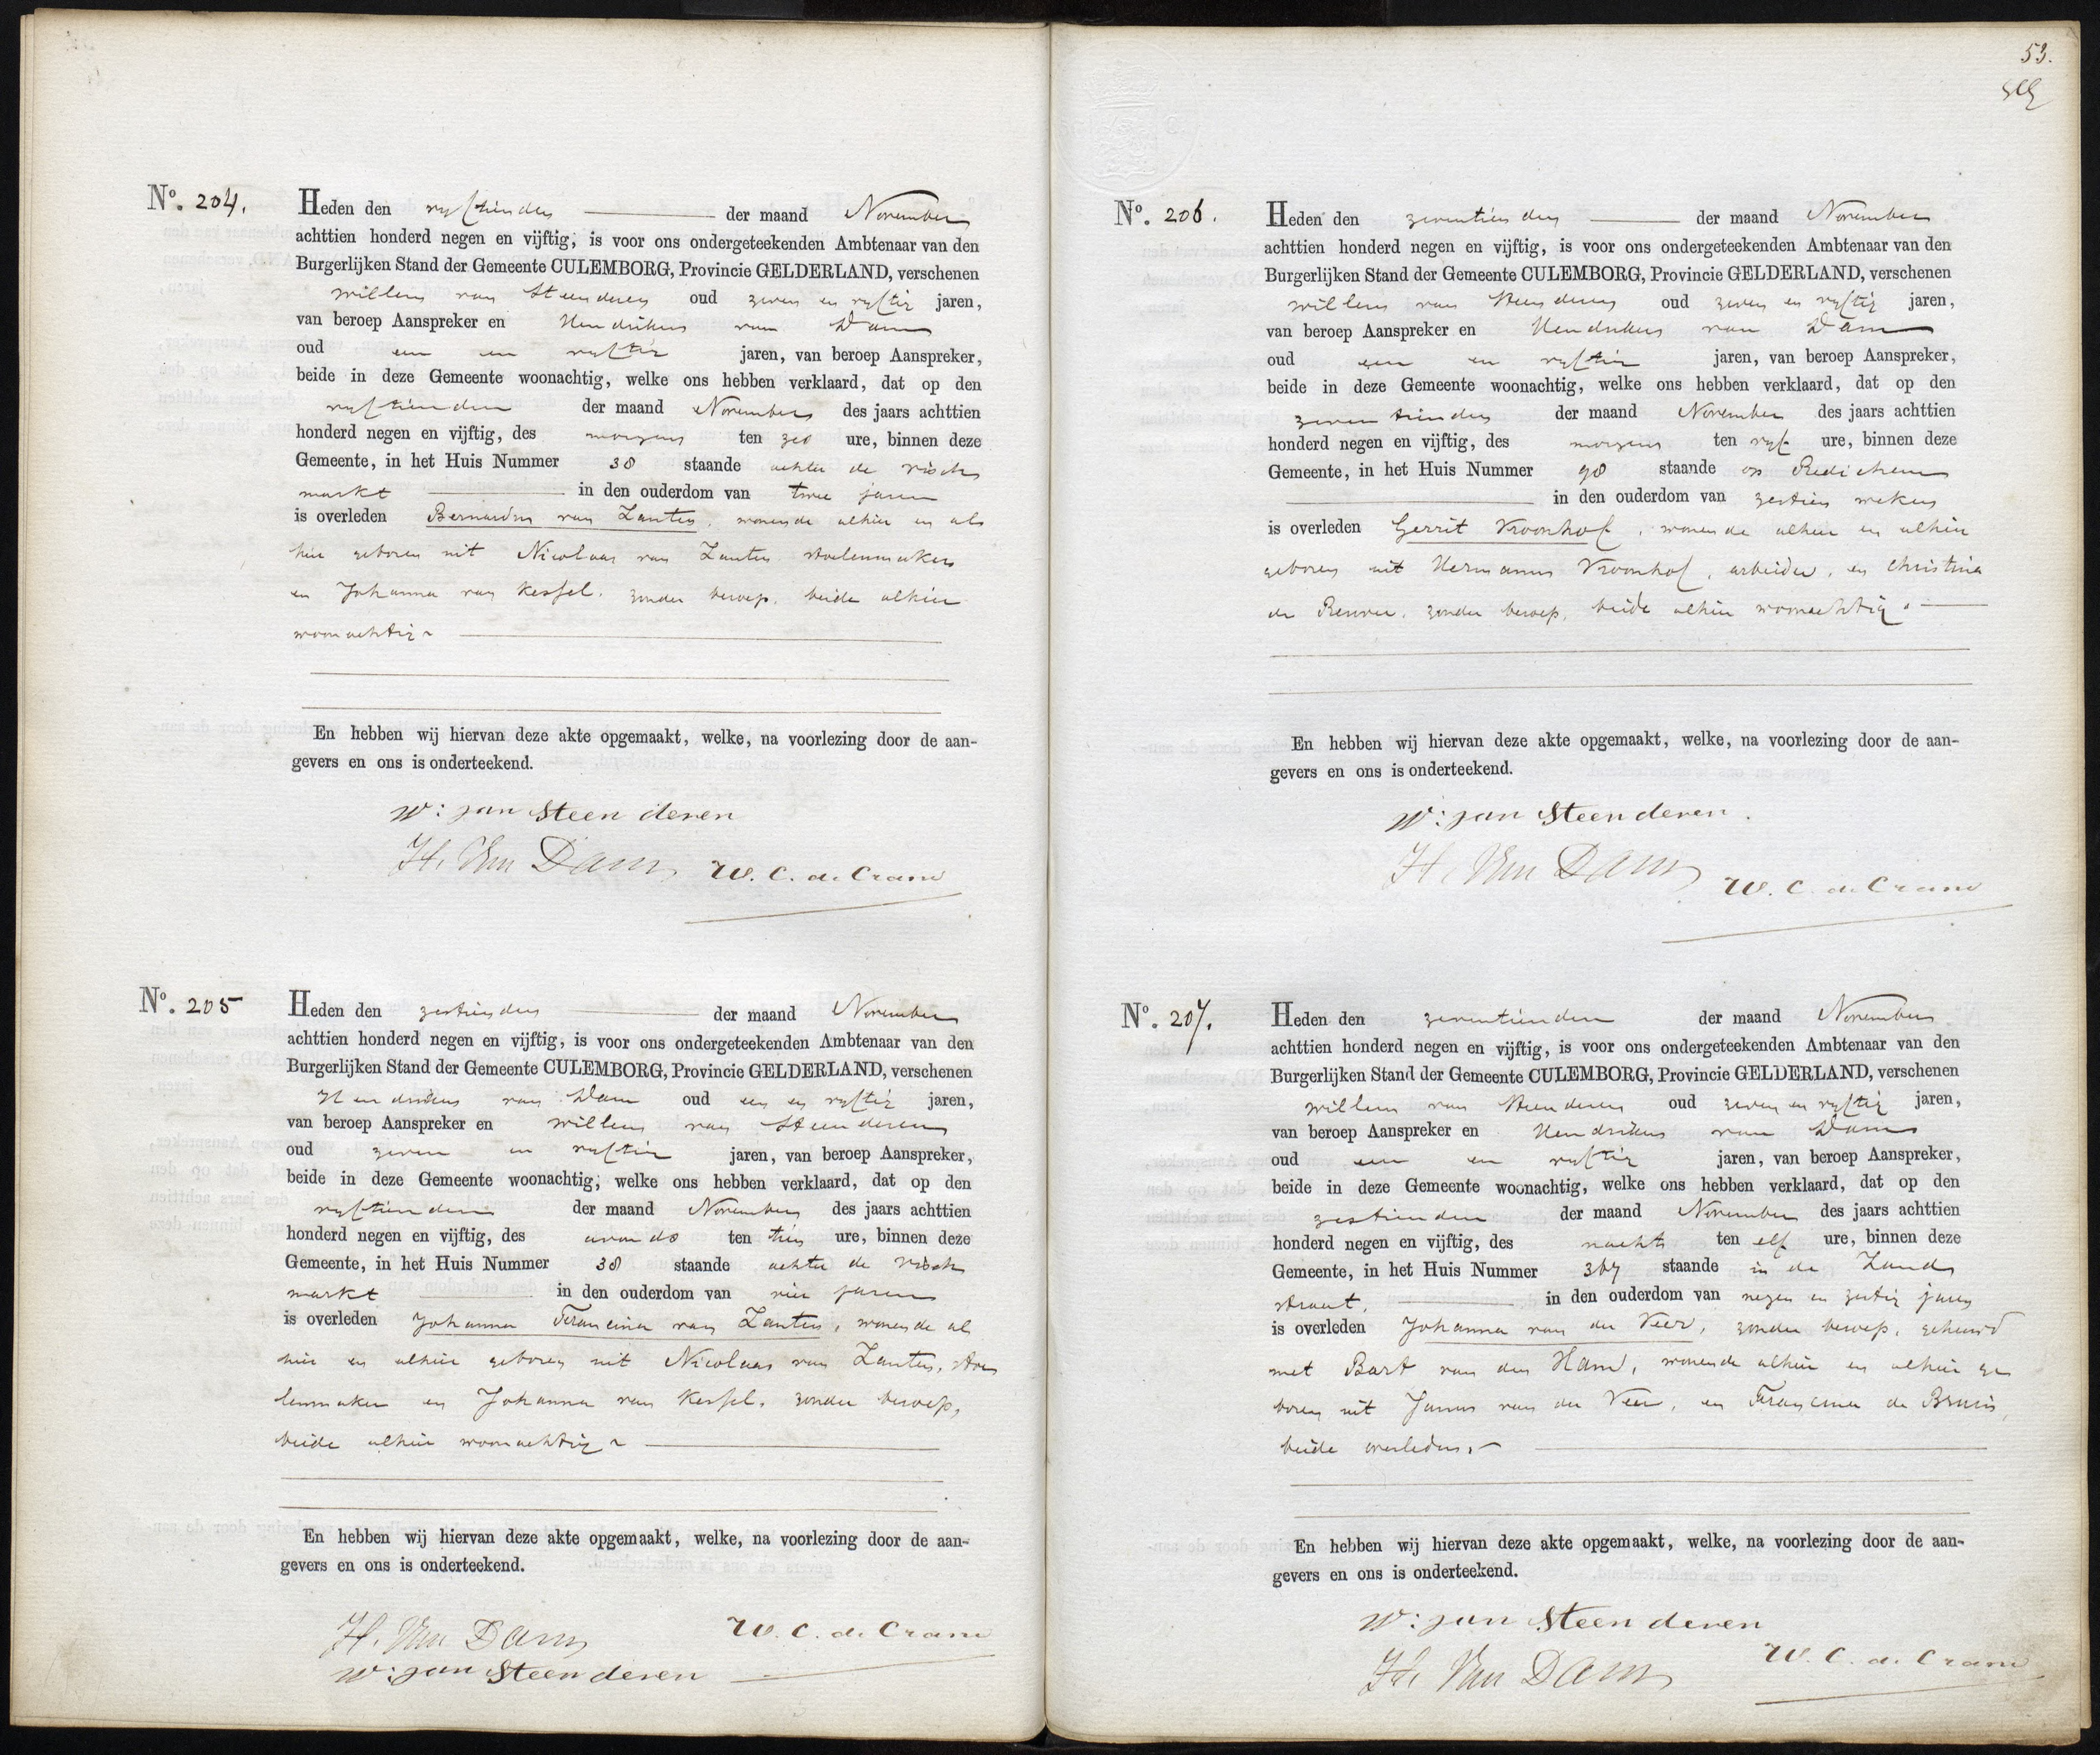 Nº. 204.
Heden den vijftienden der maand November
achttien honderd negen en vijftig, is voor ons ondergeteekenden Ambtenaar van den
Burgerlijken Stand der Gemeente CULEMBORG, Provincie GELDERLAND, verschenen
Willem van Steenderen oud zeven en vijftig jaren,
van beroep Aanspreker en Hendrikus van Dam
oud een en vijftig jaren, van beroep Aanspreker,
beide in deze Gemeente woonachtig, welke ons hebben verklaard, dat op den
vijftienden der maand November des jaars achttien
honderd negen en vijftig, des morgens ten zes ure, binnen deze
Gemeente, in het Huis Nummer 38 staande achter de Visch
markt in den ouderdom van twee jaren
is overleden Bernardus van Zanten, wonende alhier en al
hier geboren uit Nicolaas van Zanten stoelenmaker
en Johanna van Kessel, zonder beroep, beide alhier
woonachtig
En hebben wij hiervan deze akte opgemaakt, welke, na voorlezing door de aan-
gevers en ons is onderteekend.
W: van Steenderen
H. Van Dam W. C. de Crane
Nº. 205
Heden den zestienden der maand November
achttien honderd negen en vijftig, is voor ons ondergeteekenden Ambtenaar van den
Burgerlijken Stand der Gemeente CULEMBORG, Provincie GELDERLAND, verschenen
Hendrikus van Dam oud een en vijftig jaren,
van beroep Aanspreker en Willem van Steenderen
oud zeven en vijftig jaren, van beroep Aanspreker,
beide in deze Gemeente woonachtig, welke ons hebben verklaard, dat op den
vijftienden der maand November des jaars achttien
honderd negen en vijftig, des avonds ten tien ure, binnen deze
Gemeente, in het Huis Nummer 38 staande achter de Visch
markt in den ouderdom van vier jaren
is overleden Johanna Francina van Zanten, wonende al
hier en alhier geboren uit Nicolaas van Zanten, stoe
lenmaker en Johanna van Kessel, zonder beroep,
beide alhier woonachtig
En hebben wij hiervan deze akte opgemaakt, welke, na voorlezing door de aan-
gevers en ons is onderteekend.
H. Van Dam W. C. de Crane
W: van Steenderen
53.
Nº. 206.
Heden den zeventienden der maand November
achttien honderd negen en vijftig, is voor ons ondergeteekenden Ambtenaar van den
Burgerlijken Stand der Gemeente CULEMBORG, Provincie GELDERLAND, verschenen
Willem van Steenderen oud zeven en vijftig jaren,
van beroep Aanspreker en Hendrikus van Dam
oud een en vijftig jaren, van beroep Aanspreker,
beide in deze Gemeente woonachtig, welke ons hebben verklaard, dat op den
zeventienden der maand November des jaars achttien
honderd negen en vijftig, des morgens ten vijf ure, binnen deze
Gemeente, in het Huis Nummer 98 staande op Redichem
in den ouderdom van zestien weken
is overleden Gerrit Kroonhof, wonende alhier en alhier
geboren uit Hermanus Kroonhof, arbeider, en Christina
de Reuver, zonder beroep, beide alhier woonachtig.
En hebben wij hiervan deze akte opgemaakt, welke, na voorlezing door de aan-
gevers en ons is onderteekend.
W: van Steenderen.
H. Van Dam W. C. de Crane
Nº. 207.
Heden den zeventienden der maand November
achttien honderd negen en vijftig, is voor ons ondergeteekenden Ambtenaar van den
Burgerlijken Stand der Gemeente CULEMBORG, Provincie GELDERLAND, verschenen
Willem van Steenderen oud zeven en vijftig jaren,
van beroep Aanspreker en Hendrikus van Dam
oud een en vijftig jaren, van beroep Aanspreker,
beide in deze Gemeente woonachtig, welke ons hebben verklaard, dat op den
zestienden der maand November des jaars achttien
honderd negen en vijftig, des nachts ten elf ure, binnen deze
Gemeente, in het Huis Nummer 367 staande in de Zand
straat, in den ouderdom van negen en zestig jaren
is overleden Johanna van der Veer, zonder beroep, gehuwd
met Bart van den Ham, wonende alhier en alhier ge
boren uit Janus van der Veer, en Francina de Bruin,
beide overleden.
En hebben wij hiervan deze akte opgemaakt, welke, na voorlezing door de aan-
gevers en ons is onderteekend.
W: van Steenderen
H. Van Dam W. C. de Crane